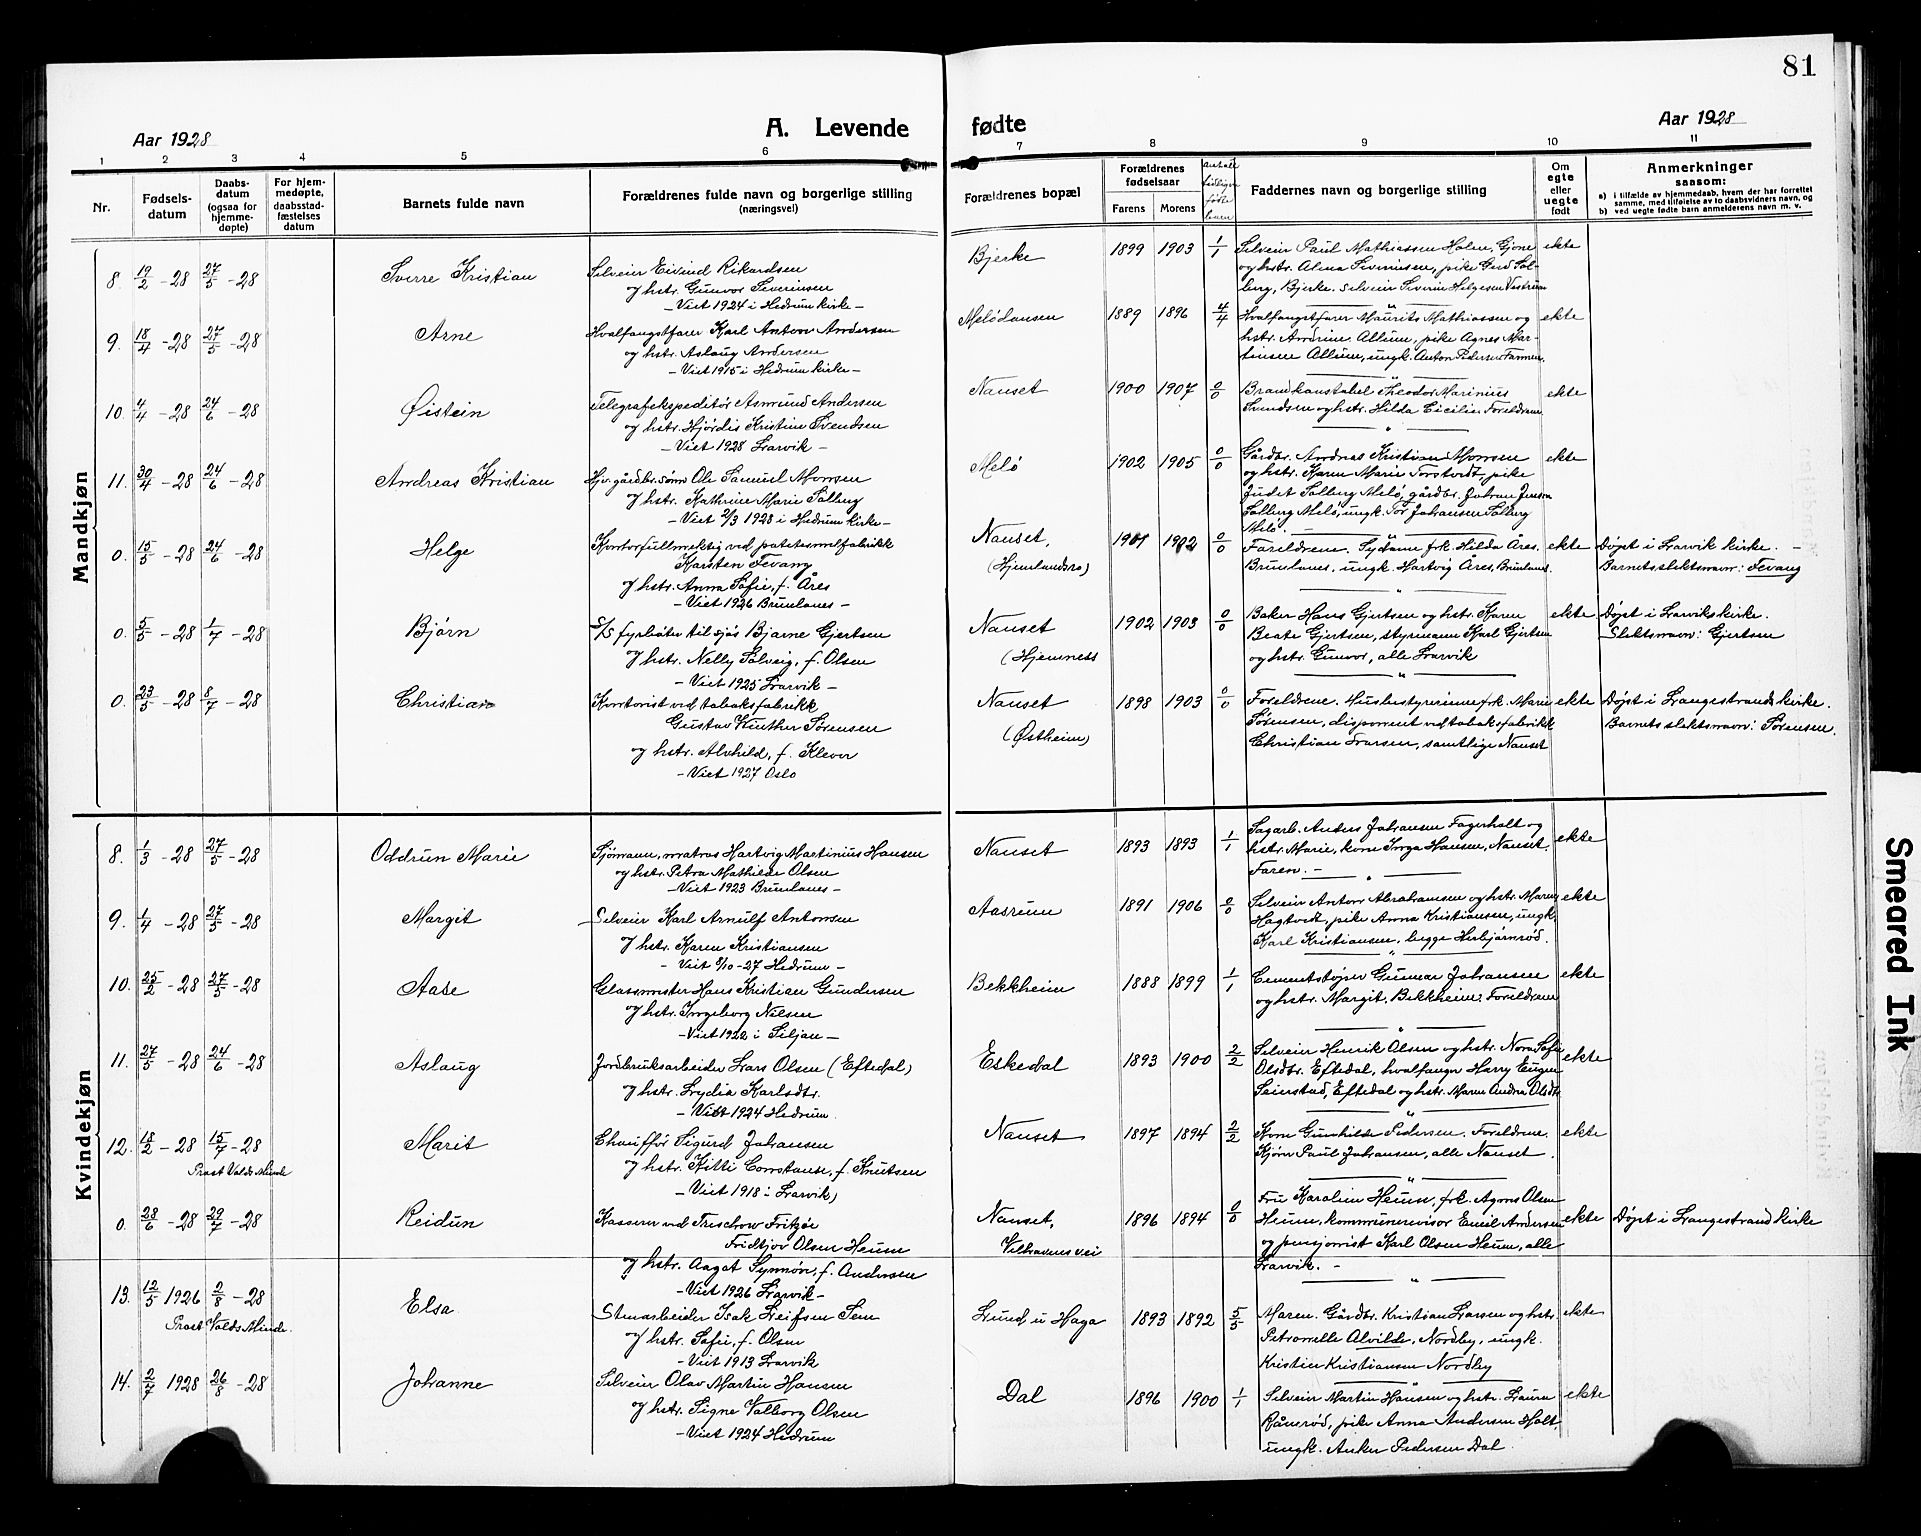 81
Aar 1928
A. Levende fødte
Aar 1928
1 2 3 4 5 6 7 8 9 10 11
Nr.
Fødsels-
datum
Daabs-
datum
(ogsaa for
hjemme-
døpte)
For hjem-
medøpte,
daabsstad-
fæstelses
datum
Barnets fulde navn
Forældrenes fulde navn og borgerlige stilling
(næringsvei)
Forældrenes bopæl
Forældrenes
fødselsaar
Farens Morens
Faddernes navn og borgerlige stilling
Om
egte
eller
uegte
født
Anmerkninger
saasom:
a) i tilfælde av hjemmedaab, hvem der har forrettet
samme, med tilføielse av to daabsvidners navn, og
b) ved uegte fødte barn anmelderens navn m. v.
Mandkjøn
8. 19/2 -28 27/5 -28 Sverre Kristian
Selveier Eivind Rikardsen
og hstr. Gunvor Severinsen
- Viet 1924 i Hedrum kirke -
Bjerke 1899 1903 1/1
Selveier Paul Mathiassen Holm, Gjone
og hstr. Alma Severinsen, pike Gerd Sol-
berg, Bjerke. Selveier Severin Helgesen Vestrum
ekte
9. 18/4 -28 27/5 -28 Arne
Hvalfangstfarer Karl Anton Andersen
og hstr. Aslaug Andersen
- Viet 1915 i Hedrum kirke -
Melödansen 1889 1896 4/4
Hvalfangstfarer Maurits Mathiassen og
hstr. Andrine Allum, pike Agnes Mar-
tinsen Allum, ungk. Anton Pedersen Farmen.
ekte
10. 4/4 -28 24/6 -28 Øistein
Telegrafekspeditör Asmund Andersen
og hstr. Hjördis Kristine Svendsen
- Viet 1928 Larvik -
Nanset 1900 1907 0/0
Brandkonstabel Theodor Marinius
Svendsen og hstr. Hilda Cicilie. Foreldrene
ekte
11. 30/4 -28 24/6 -28 Andreas Kristian
Hjv. gårdbr. sönn Ole Samuel Momsen
og hstr. Kathrine Marie Solberg
- Viet 2/3 1928 i Hedrum kirke -
Melö 1902 1905 0/0
Gårdbr. Andreas Kristian Momsen
og hstr. Karen Marie Torstvedt, pike
Judet Solberg Melö, gårdbr. Johan Jensen
Solberg Melö, ungk. Tor Johansen Solberg
Melö.
ekte
0. 15/5 -28 24/6 -28 Helge
Kontorfullmektig ved patetsmelfabrikk
Karsten Fevang
og hstr. Anna Sofie, f. Åres
- Viet 1926 Brunlanes -
Nanset,
(Hjemlandsro)
1901 1902 0/0
Foreldrene. Sydame frk. Hilda Åres,
Brunlanes, ungk. Hartvig Åres, Brunlanes.
ekte
Döpt i Larvik kirke. -
Barnets slektsnavn: Fevang
0. 5/5 -28 1/7 -28 Björn
S/S fyrböter til sjös Bjarne Gjertsen
og hstr. Nelly Solveig, f. Olsen
- Viet 1925 Larvik -
Nanset
(Hjemness
1902 1903 0/0
Baker Hans Gjertsen og hstr. Karen
Beate Gjertsen, styrmann Karl Gjertsen
og hstr. Gunvor, alle Larvik
ekte
Döpt i Larviks kirke.
Slektsnavn: Gjertsen
0. 23/5 -28 8/7 -28 Christian
Kontorist ved tobaksfabrikk
Gustav Günther Sörensen
og hstr. Alvhild, f. Klever
- Viet 1927 Oslo
Nanset
(Østheim)
1898 1903 0/0
Foreldrene. Husbestyrerinne frk. Marie
Sörensen, disponent ved tobaksfabrikk
Christian Larsen, samtlige Nanset
ekte
Döpt i Langestrands kirke.
Barnets slektsnavn: Sörensen.
Kvindekjøn
8. 1/3 -28 27/5 -28 Oddrun Marie
Sjömann, matros Hartvig Martinius Hansen
og hstr. Petra Mathilde Olsen
- Viet 1923 Brunlanes -
Nanset 1893 1893 1/1
Sagarb. Anders Johansen Fagerholt og
hstr. Marie, kone Inga Hansen, Nanset.
Faren. -
ekte
9. 1/4 -28 27/5 -28 Margit
Selveier Karl Arnulf Antonsen
og hstr. Karen Kristiansen
- Viet 8/10 -27 Hedrum -
Aasrum 1891 1906 0/0
Selveier Anton Abrahamsen og hstr. Maren
Hagtvedt, pike Anna Kristiansen, ungk.
Karl Kristiansen, begge Herbjörnröd.
ekte
10. 25/2 -28 27/5 -28 Aase
Glassmester Hans Kristian Gundersen
og hstr. Ingeborg Nilsen
- Viet 1922 i Siljan -
Bekkheim 1888 1899 1/1
Cementstöper Gunnar Johansen
og hstr. Margit, Bekkheim. Foreldrene
ekte
11. 27/5 -28 24/6 -28 Aslaug
Jordbruksarbeider Lars Olsen (Eftedal)
og hstr. Lydia Karlsdtr.
- Viet 1924 Hedrum.
Eskedal 1893 1900 2/2
Selveier Henrik Olsen og hstr. Nora Sofie
Olsdtr. Eftedal, hvalfanger Harry Eugen
Seierstad, Eftedal og hstr. Maren Andrea Olsdtr
ekte
12. 18/2 -28 15/7 -28 Marit
Prost Valds Minde
Chaufför Sigurd Johansen
og hstr. Kitti Constanse, f. Knutsen
- Viet 1918 i Larvik)
Nanset 1897 1894 2/2
Kone Gunhilde Pedersen. Foreldrene.
Kjörn Paul Johansen, alle Nanset.
ekte
0. 28/6 -28 29/7 -28 Reidun
Kasserer ved Treschow Fritzöe
Fridtjov Olsen Heum
og hstr. Aagot Synnöv, f. Andersen
- Viet 1926 Larvik -
Nanset,
1896 1894 0/0
Fru Karoline Heum, frk. Agnes Olsen
Heum, kommunerevisor Emil Andersen
og pensjonist Karl Olsen Heum, alle
Larvik. -
ekte
Döpt i Langestrand kirke
13. 12/5 1926 2/8 -28 Elsa
Prost Valds Minde.
Stenarbeider Isak Leifsen Sem
og hstr. Sofie, f. Olsen
- Viet 1913 Larvik
Lund u Haga 1893 1892 5/5
Maren. Gårdbr. Kristian Larsen og hstr.
Petronelle Alvilde, Nordby, ungk.
Kristen Kristiansen Nordby
ekte
14. 2/7 1928 26/8 -28 Johanne
Selveier Olav Martin Hansen
og hstr. Signe Valborg Olsen
- Viet 1924 Hedrum
Dal 1896 1900 1/1
Selveier Martin Hansen og hstr. Laura
Råmröd, pike Anna Andersen Holt,
ungk. Anker Pedersen Dal
ekte
Smeared Ink